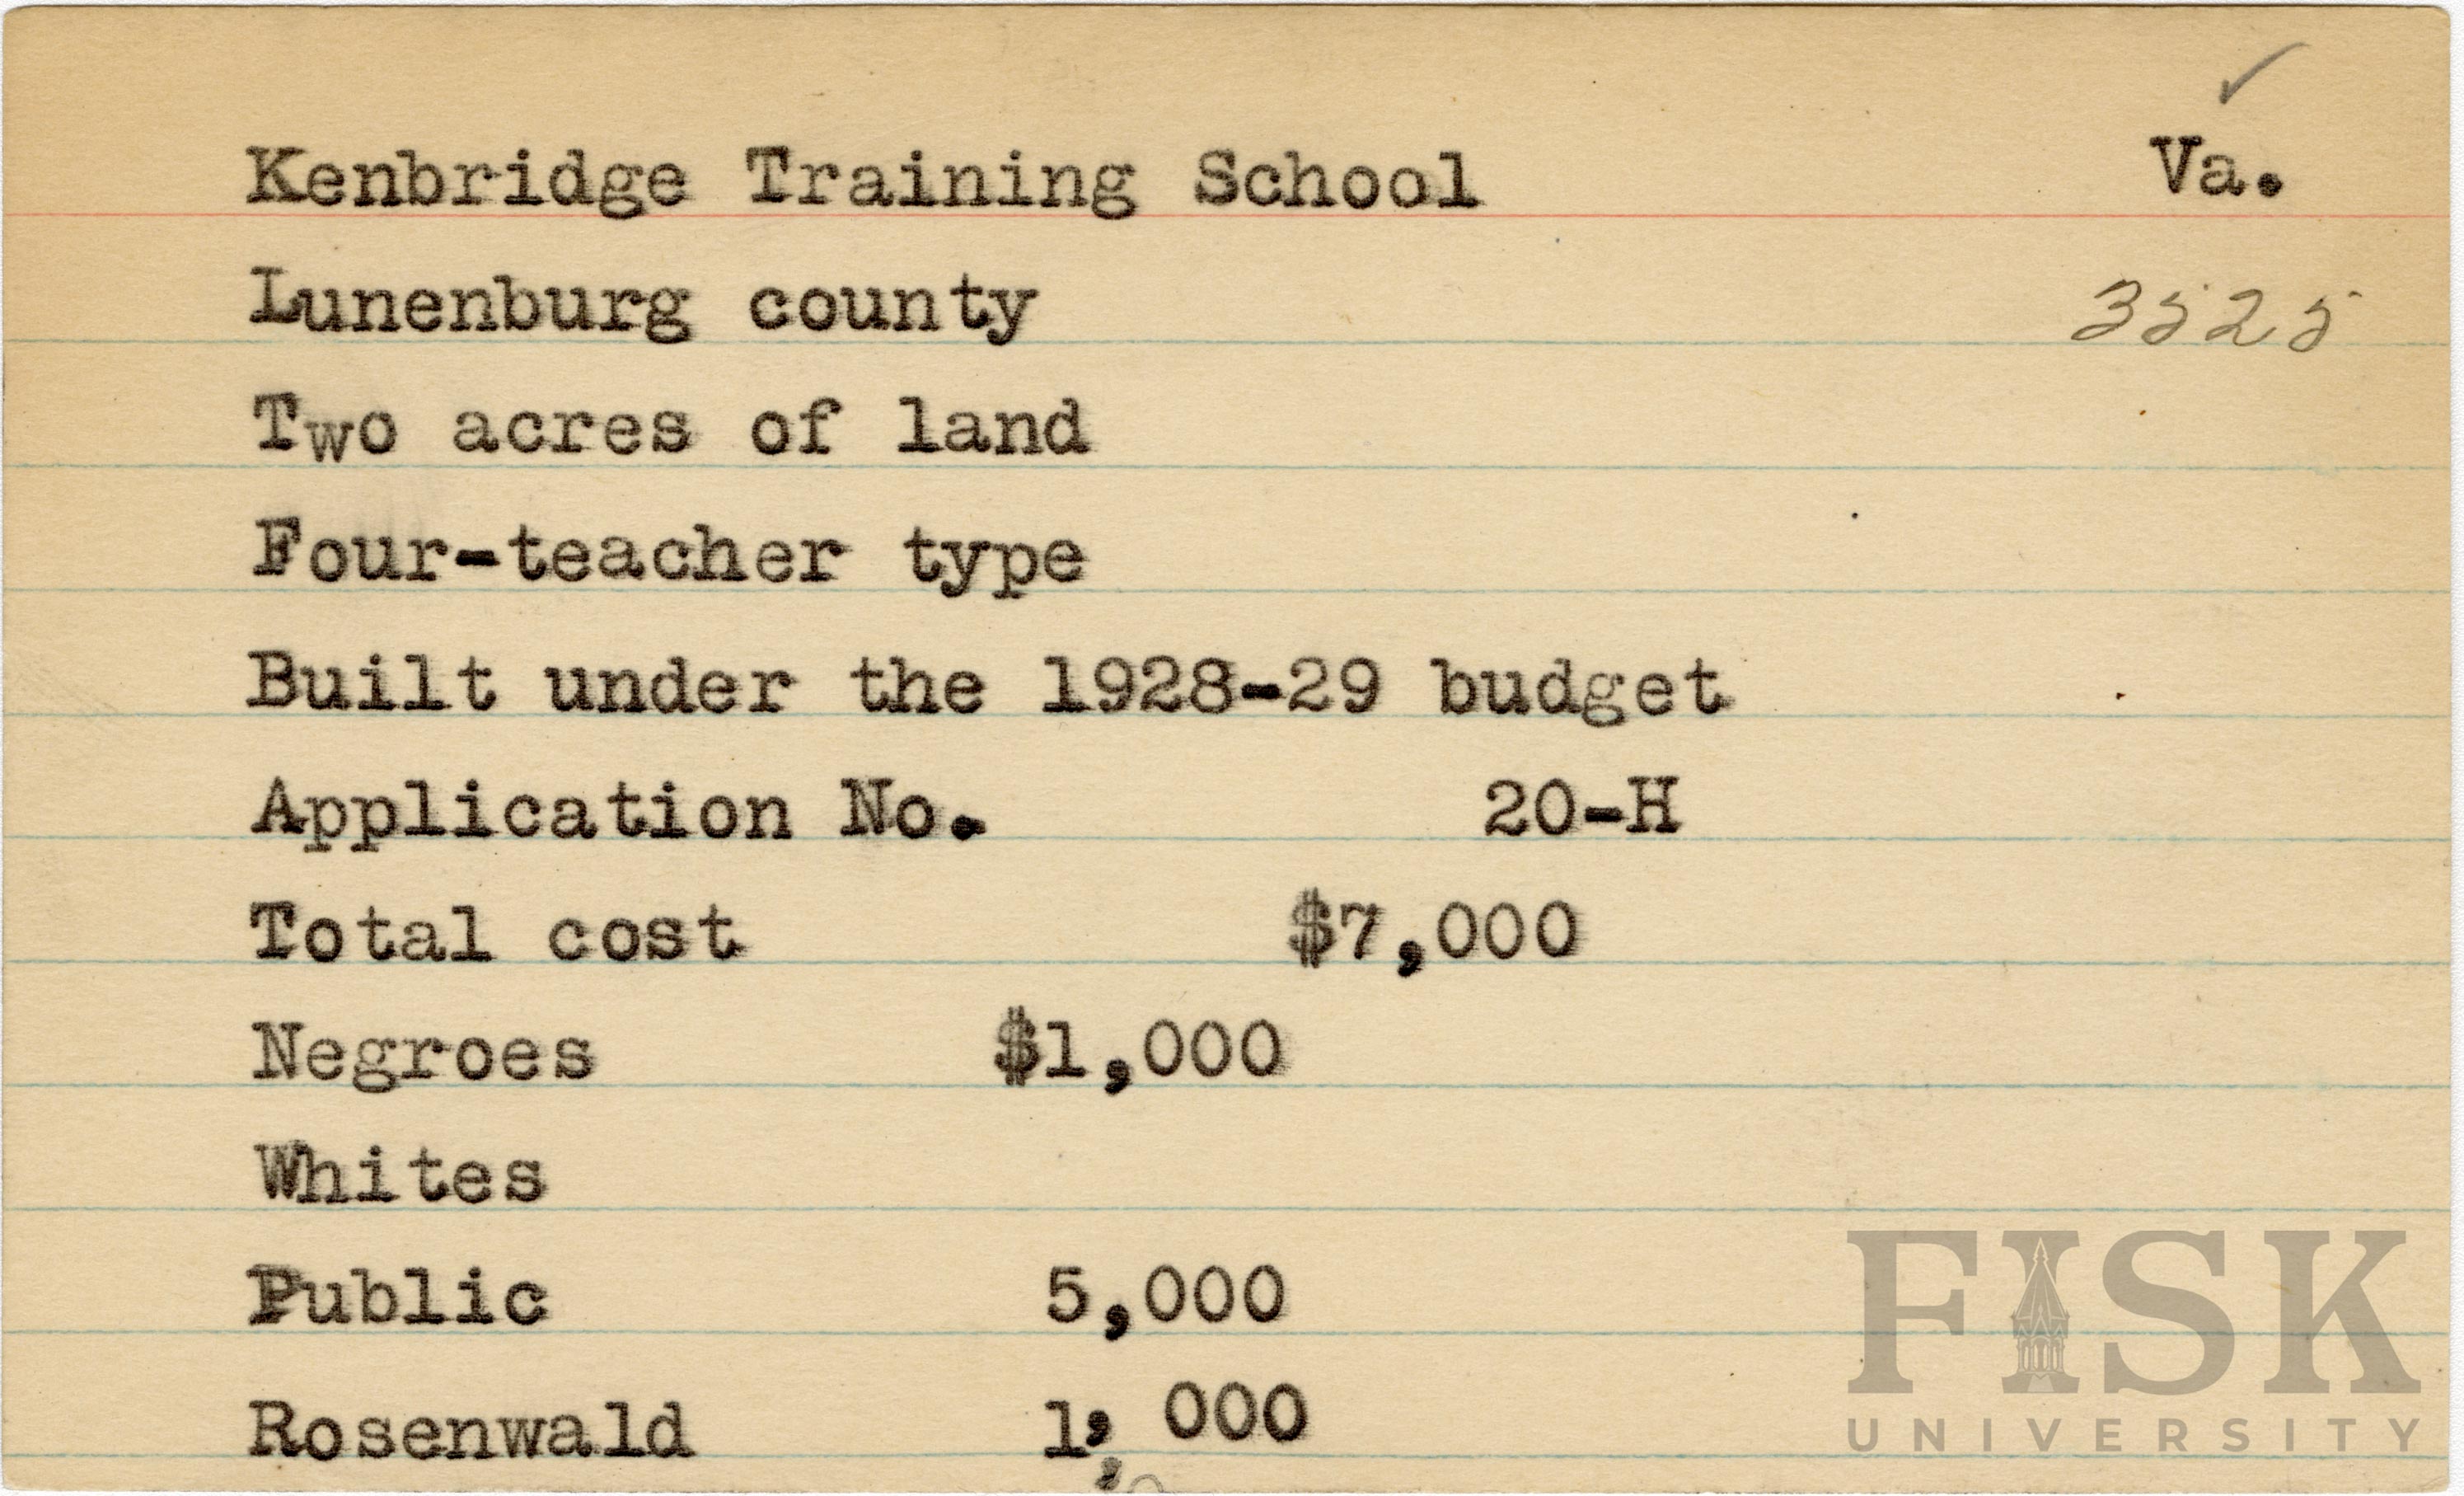 ✓
Kenbridge Training School Va.
Lunenburg county 3525
Two acres of land
Four-teacher type
Built under the 1928-29 budget
Application No. 20-H
Total cost $7,000
Negroes $1,000
Whites
Public 5,000
Rosenwald 1, 000
FISK
UNIVERSITY